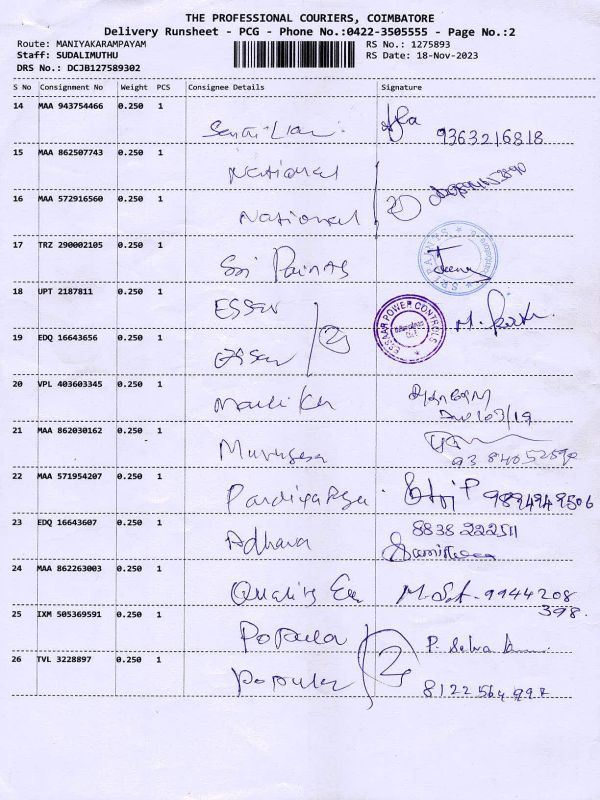 THE PROFESSIONAL COURIERS, COIMBATORE
Delivery Runsheet - PCG - Phone No.:0422-3505555 - Page No.:2
Route: MANIYAKARAMPAYAM RS No.: 1275893
Staff: SUDALIMUTHU RS Date: 18-Nov-2023
DRS No.: DCJB127589302
S No Consignment No Weight PCS Consignee Details Signature
14 MAA 943754466 0.250 1
9363216818
15 MAA 862507743 0.250 1
National
16 MAA 572916560 0.250 1
National 2
17 TRZ 290002105 0.250 1
Sri
18 UPT 2187811 0.250 1
Essar
ESSAAR POWER CONTROLS
19 EDQ 16643656 0.250 1
Essar 2
20 VPL 403603345 0.250 1
21 MAA 862030162 0.250 1
Murugesa
22 MAA 571954207 0.250 1
9894949506
23 EDQ 16643607 0.250 1
8838222511
Adhava
24 MAA 862263003 0.250 1
Quality 9944208
398
25 IXM 505369591 0.250 1
Popular P. Selva
26 TVL 3228897 0.250 1
Popular 2
8122564997